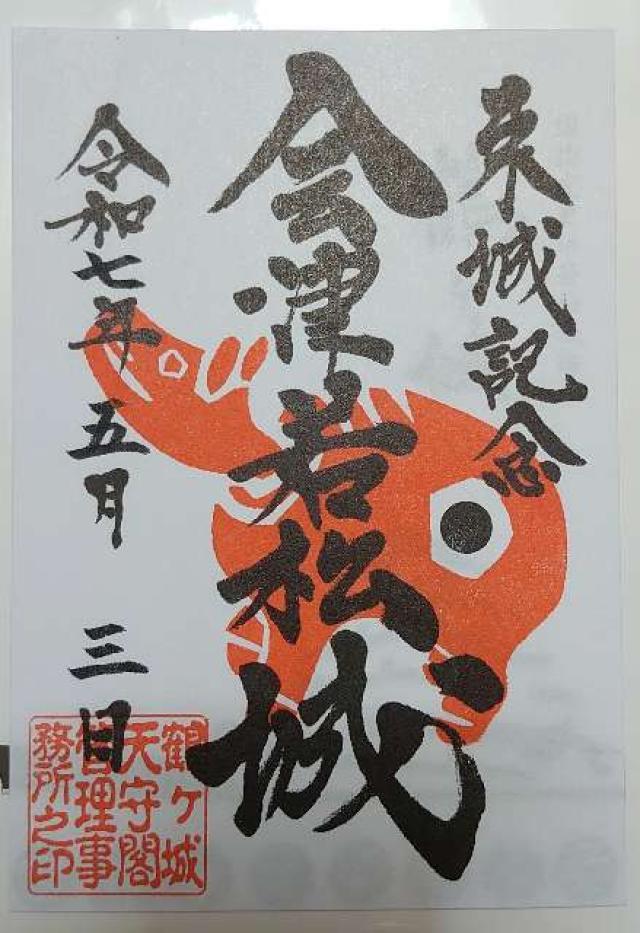 来城記念
会津若松城
令和七年五月三日
鶴ヶ城
天守閣
管理事
務所之印